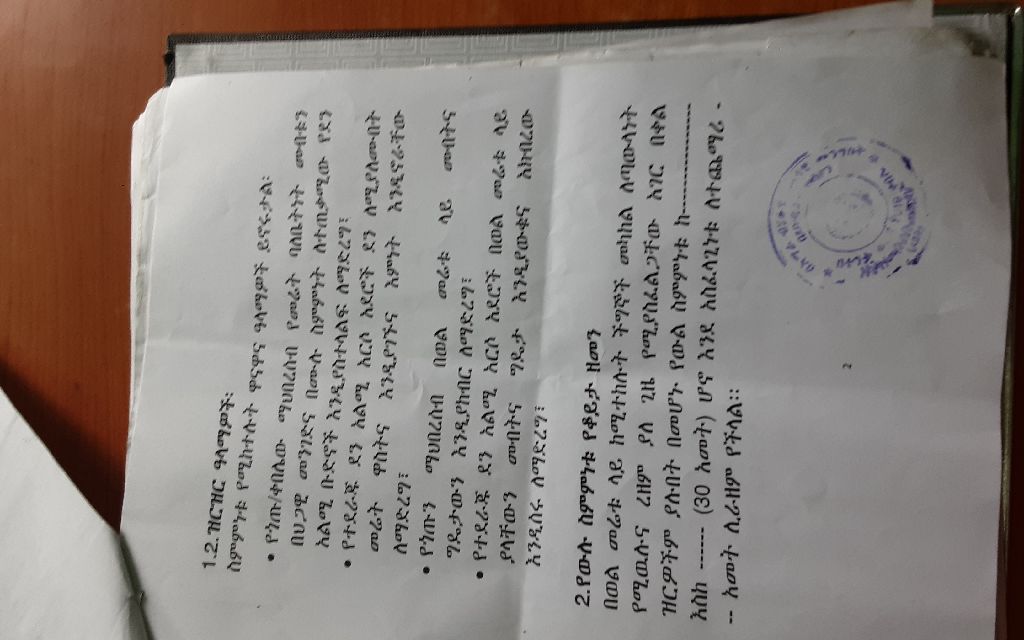 1.2. ዝርዝር ዓላማዎች፡
ስምምነቱ የሚከተሉት ዋናዋና ዓላማዎች ይኖሩታል፡
• የንኡስ/ቀበሌው ማህበረሰብ የመሬት ባለቤትነት መብቱን
በህጋዊ መንገድና በሙሉ ስምምነት ለተጠቃሚው የደን
አልሚ ቡድኖች እንዲያስተላልፍ ለማድረግ፣
• የተደራጁ ደን አልሚ አርሶ አደሮች ደን ለሚያለሙበት
መሬት ዋስትና እንዲያገኙና እምነት እንዲኖራቸው
ለማድረግ፣
• የንኡን ማህበረሰብ በወል መሬቱ ላይ መብትና
ግዴታውን እንዲያከብር ለማድረግ፣
• የተደራጁ ደን አልሚ አርሶ አደሮች በወል መሬቱ ላይ
ያላቸውን መብትና ግዴታ እንዲያውቁና አክብረው
እንዲሰሩ ለማድረግ፣
2.የውሉ ስምምነቱ የቆይታ ዘመን
በወል መሬቱ ላይ ከሚተከሉት ችግኞች መካከል ለጣውላነት
የሚውሉና ረዘም ያለ ጊዜ የሚያስፈልጋቸው አገር በቀል
ዝርያዎችም ያሉበት በመሆኑ የውል ስምምነቱ ከ----------------
እስከ ----- (30 አመት) ሆኖ እንደ አስፈላጊነቱ ለተጨማሪ -
-- አመት ሊራዘም የችላል።
2